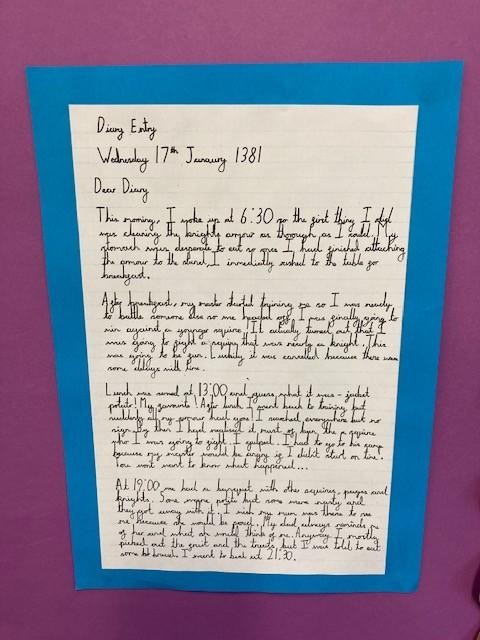 Diary Entry
Wednesday 17th Janaury 1381
Dear Diary
This morning, I woke up at 6:30 so the first thing I did
was cleaning the knights armour as thorough as I could. My
stomach was desperate to eat so once I had finished attaching
the armour to the stand, I immediatly rushed to the table for
breakfast.
After breakfast, my master started training me so I was ready
to battle someone else so we headed off. I was finally going to
win against a younger squire! It actually turned out that I
was going to fight a squire that was nearly a knight. This
was going to be fun. Luckily it was cancelled because there was
some delays with time.
Lunch was served at 13:00 and guess what it was - jacket
potato! My favourite! After lunch, I went back to training but
suddenly all my armour had gone! I searched everywhere but no
sign. By then I had realised it must of been the squire
who I was going to fight. I gulped. I had to go to his camp
because my master would be angry if I didn't start on time.
You wont want to know what happened...
At 19:00 we had a banquet with other squires, pages and
knights. Some were polite but some were nasty and
they got away with it. I wish my mum was there to see
me because she would be proud. My dad always reminds me
of her and what she would think of me. Anyway I mostly
picked out the fruit and the breads but I was told to eat
some broth. I went to bed at 21:30.